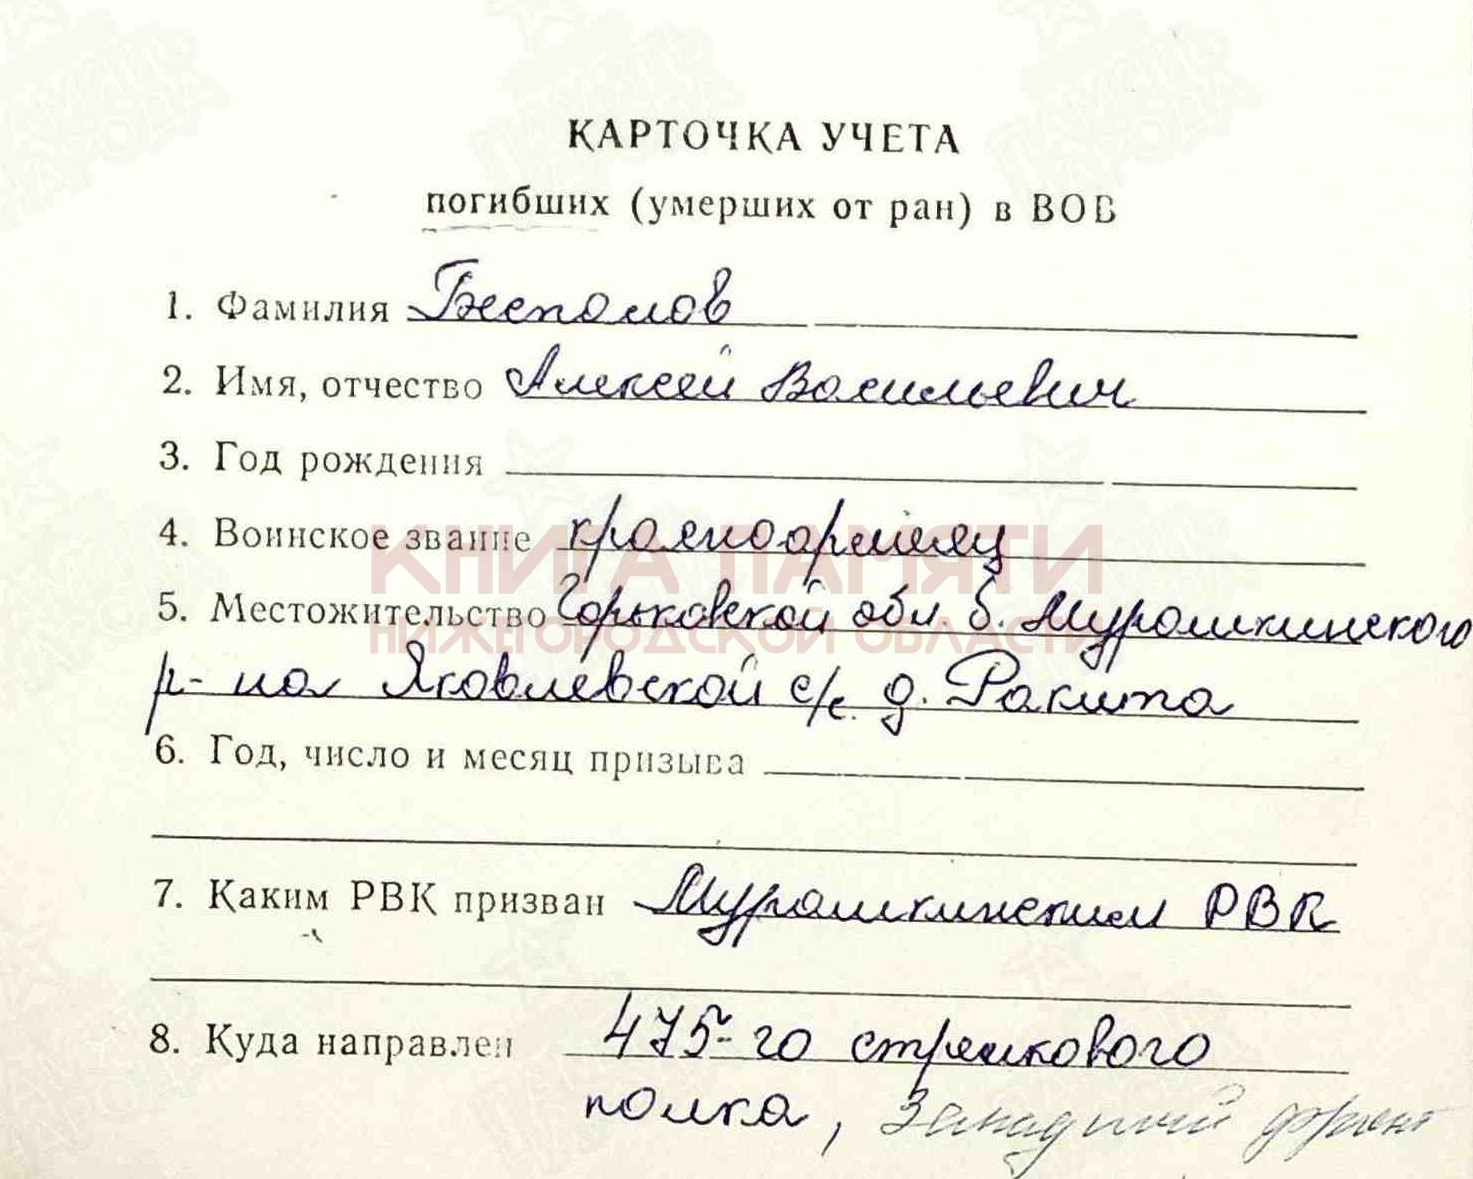 КАРТОЧКА УЧЕТА
погибших (умерших от ран) в ВОВ
1. Фамилия Беспалов
2. Имя, отчество Алексей Васильевич
3. Год рождения
4. Воинское звание красноармеец
5. Местожительство Горьковской обл. б. Мурашкинского
р-на Яковлевской с/с. д. Ракита
6. Год, число и месяц призыва
7. Каким РВК призван Мурашкинским РВК
8. Куда направлен 475-го стрелкового
полка, Западный фронт
КНИГА ПАМЯТИ
НИЖЕГОРОДСКОЙ ОБЛАСТИ